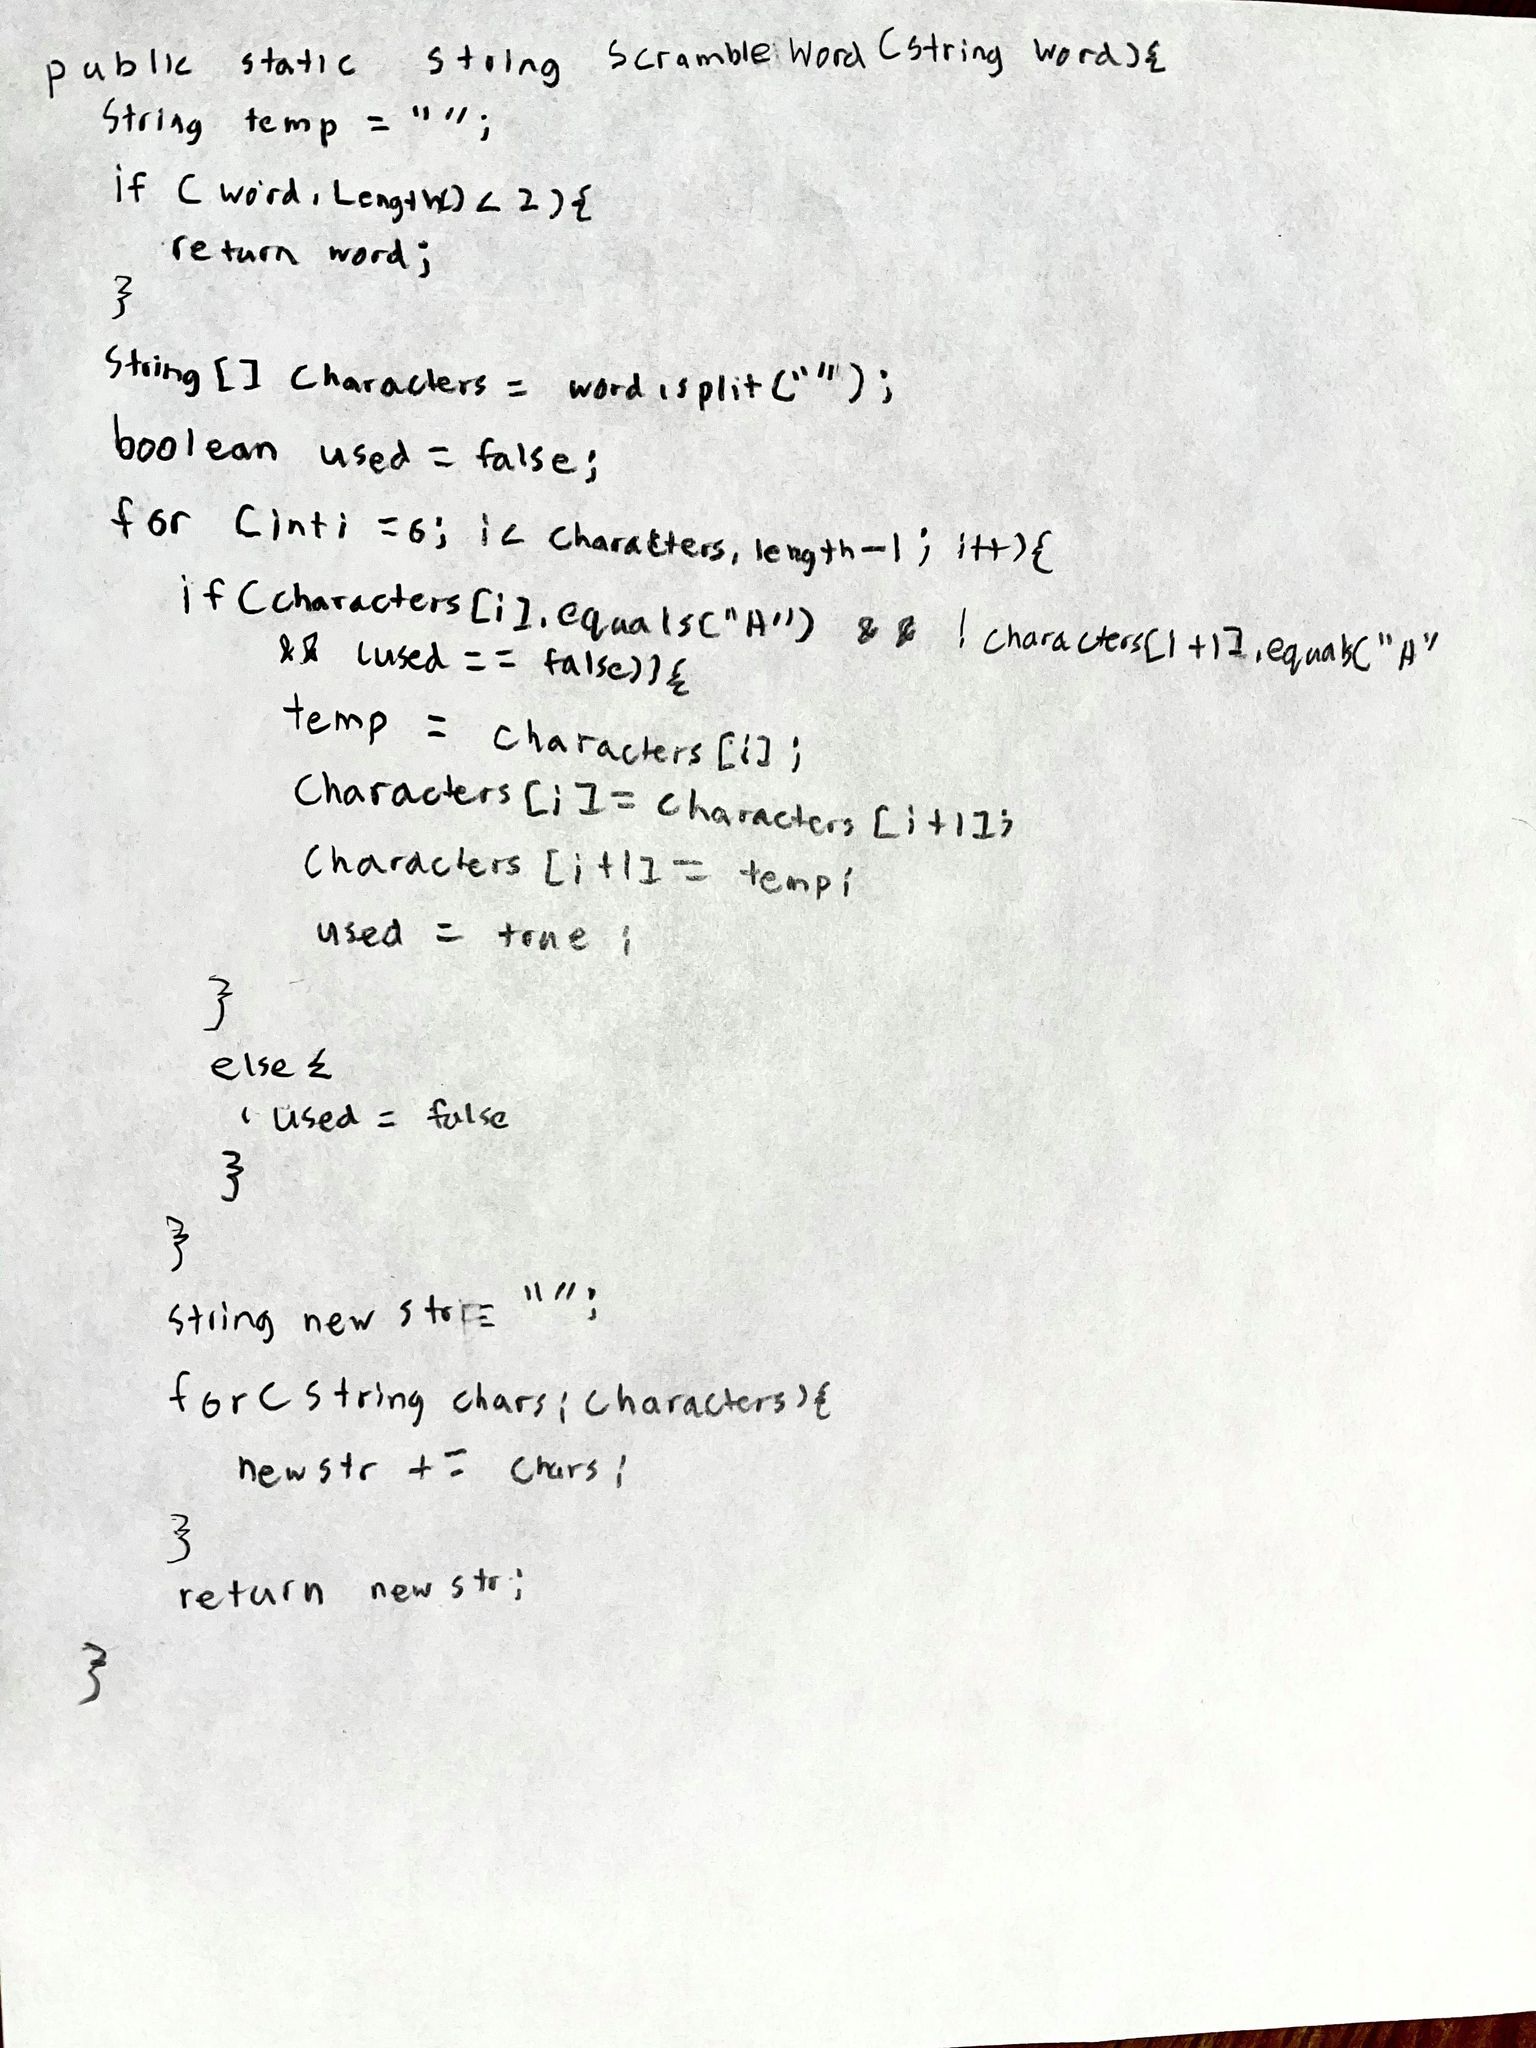 public static string ScrambleWord (string word){
String temp = "";
if ( word.Length() < 2 ){
return word;
}
String [] Characters = word.split ("");
boolean used = false;
for (int i =0; i< Characters.length-1; i++){
if (characters[i].equals("A") && ! characters[i+1].equals("A"
&& (used == false)){
temp = characters[i];
Characters[i] = characters [i+1];
Characters [i+1] = temp;
used = true ;
}
else {
used = false
}
}
string new str = "";
for( String chars: Characters){
new str += chars;
}
return new str;
}